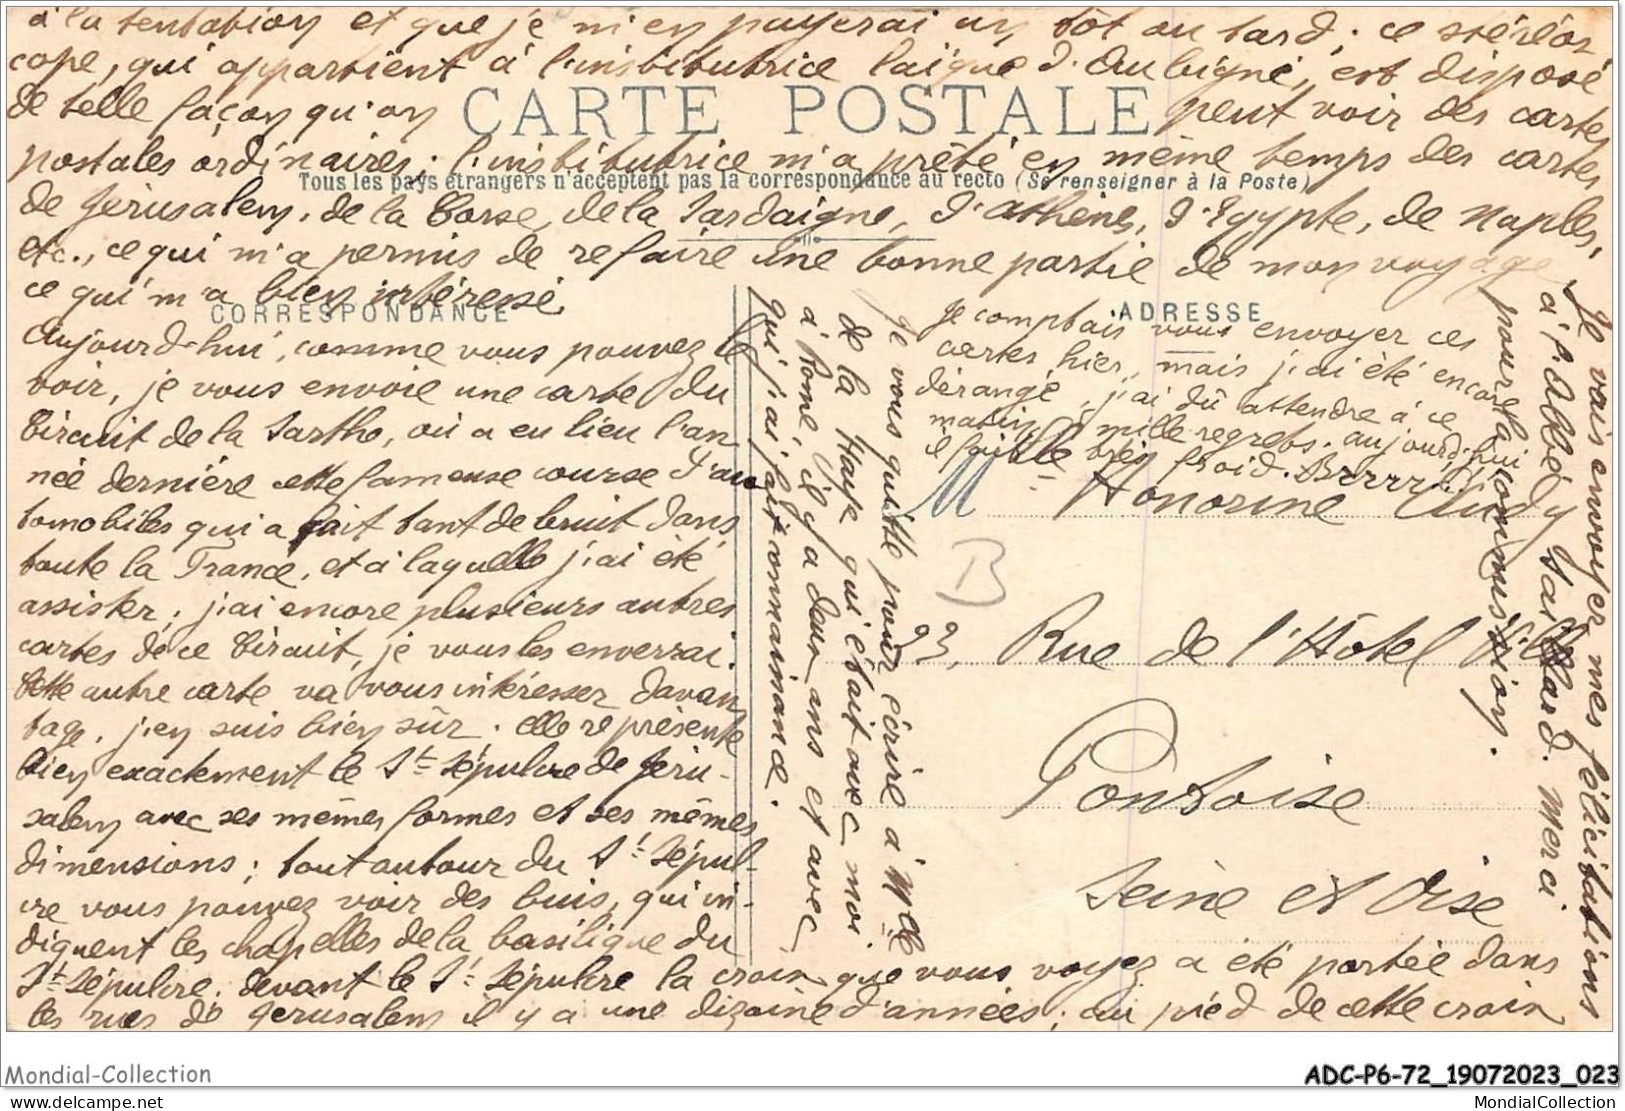 à la tentation et que je m'en payerai un tôt ou tard ; ce stéréos
cope, qui appartient à l'institutrice laïque d'Aubigné, est disposé
de telle façon qu'on peut voir des cartes
CARTE POSTALE
postales ordinaires ; l'institutrice m'a prêté en même temps des cartes
Tous les pays étrangers n'acceptent pas la correspondance au recto (Se renseigner à la Poste)
de Jérusalem, de la Corse, de la Sardaigne, d'Athènes, d'Egypte, de Naples,
etc., ce qui m'a permis de refaire une bonne partie de mon voyage
ce qui m'a bien intéressé.
CORRESPONDANCE
Aujourd'hui, comme vous pouvez le
voir, je vous envoie une carte du
Circuit de la Sarthe, où a eu lieu l'an
née dernière cette fameuse course d'au
tomobiles qui a fait tant de bruit dans
toute la France, et à laquelle j'ai été
assister ; j'ai encore plusieurs autres
cartes de ce Circuit, je vous les enverrai.
Cette autre carte va vous intéresser davan
tage, j'en suis bien sûr. elle représente
bien exactement le St Sépulcre de Jéru-
salem avec ses mêmes formes et ses mêmes
dimensions ; tout autour du St Sépul-
cre vous pouvez voir des buis, qui in-
diquent les chapelles de la basilique du
St Sépulcre. devant le St Sépulcre la croix que vous voyez a été portée dans
les rues de Jérusalem il y a une dizaine d'années ; au pied de cette croix
Je vais envoyer mes félicitations
à l'Abbé Gaillard. Merci
pour la commission.
Je vous quitte pour écrire à Mlle
de la Haye qui était avec moi
à Rome, il y a deux ans et avec
qui j'ai fait connaissance.
ADRESSE
Je comptais vous envoyer ces
cartes hier, mais j'ai été encore
dérangé, j'ai dû attendre à ce
matin, mille regrets. aujourd'hui
il fait très froid. Brrrrr!!
Mlle Honorine Cindy
B
23, Rue de l'Hôtel Ville
Pontoise
Seine et Oise
Mondial-Collection
ADC-P6-72_19072023_023
www.mondialcollection.net
MondialCollection